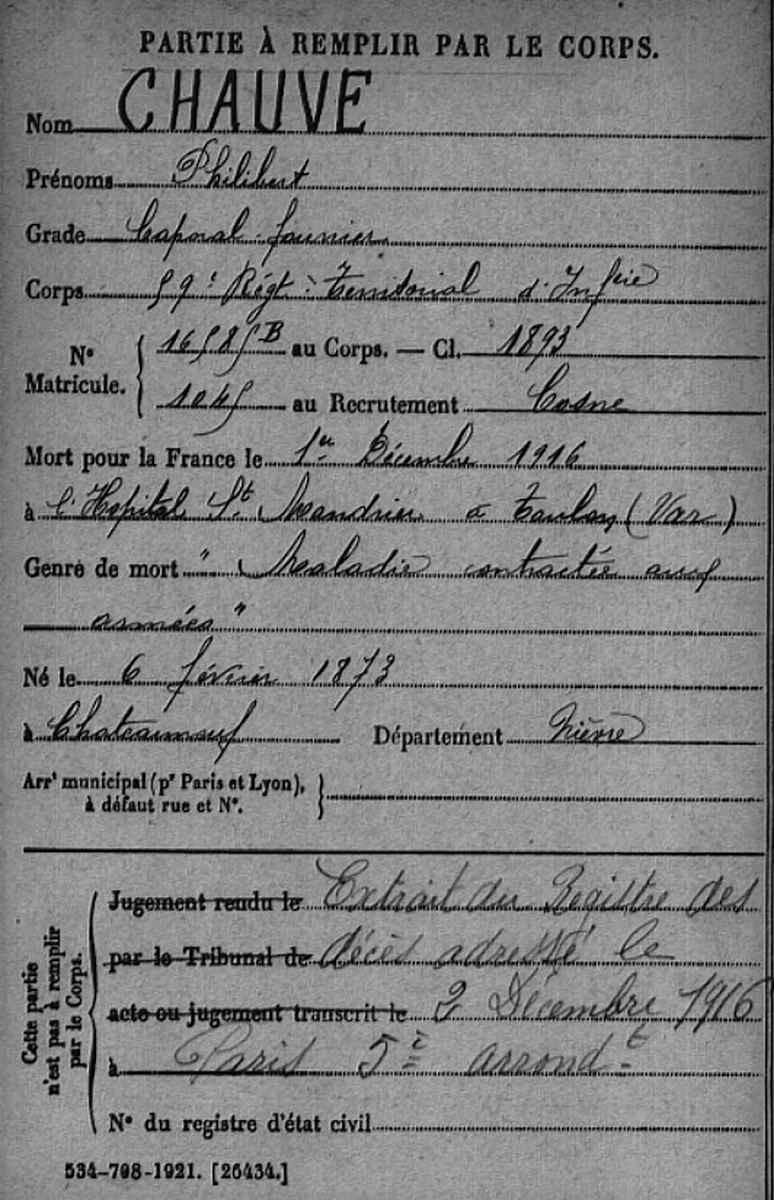 PARTIE À REMPLIR PAR LE CORPS.
Nom CHAUVE
Prénoms Philibert
Grade Caporal fourrier
Corps 59e Régt Territorial d'Infrie
No Matricule. 16585 B au Corps. — Cl. 1893
1045 au Recrutement Cosne
Mort pour la France le 1er Décembre 1916
à l'Hôpital St Mandrier à Toulon (Var)
Genre de mort "Maladie contractée aux
armées"
Né le 6 février 1873
à Chateauneuf Département Nièvre
Arrt municipal (pr Paris et Lyon),
à défaut rue et No.
Cette partie
n'est pas à remplir
par le Corps.
Jugement rendu le Extrait du Registre des
par le Tribunal de décès adressé le
acte ou jugement transcrit le 2 Décembre 1916
à Paris 5e arrondt
No du registre d'état civil
534-708-1921. [26434.]